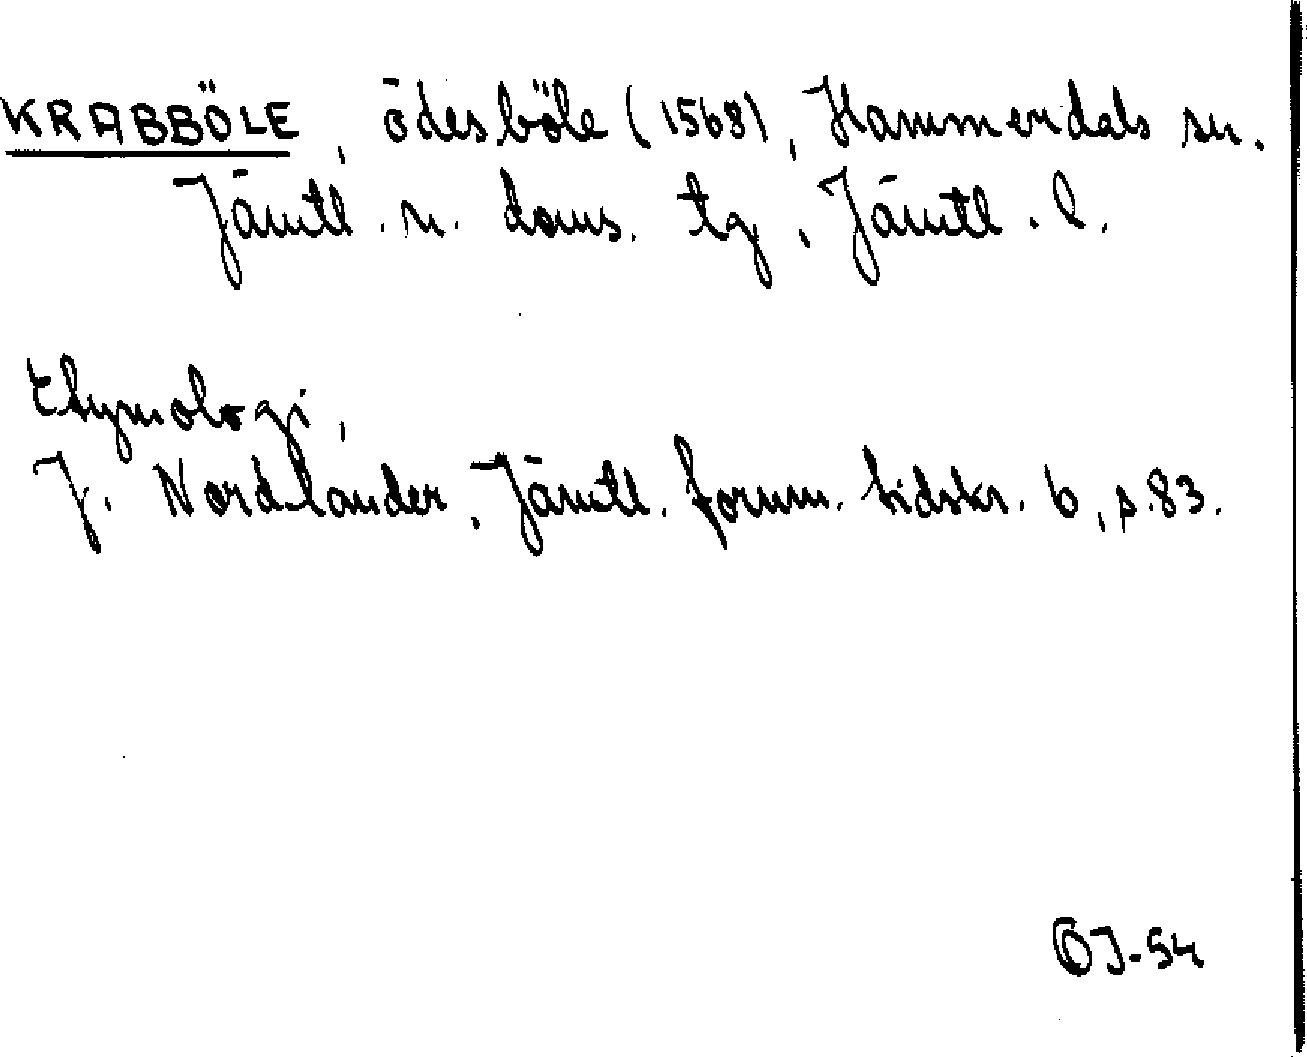 KRABBÖLE, ödesböle (1568), Hammerdals sn.
Jämtl. n. doms. tg, Jämtl. l.
Etymologi,
J. Nordlander, Jämtl. fornm. tidskr. 6, s. 83.
ÖJ-54